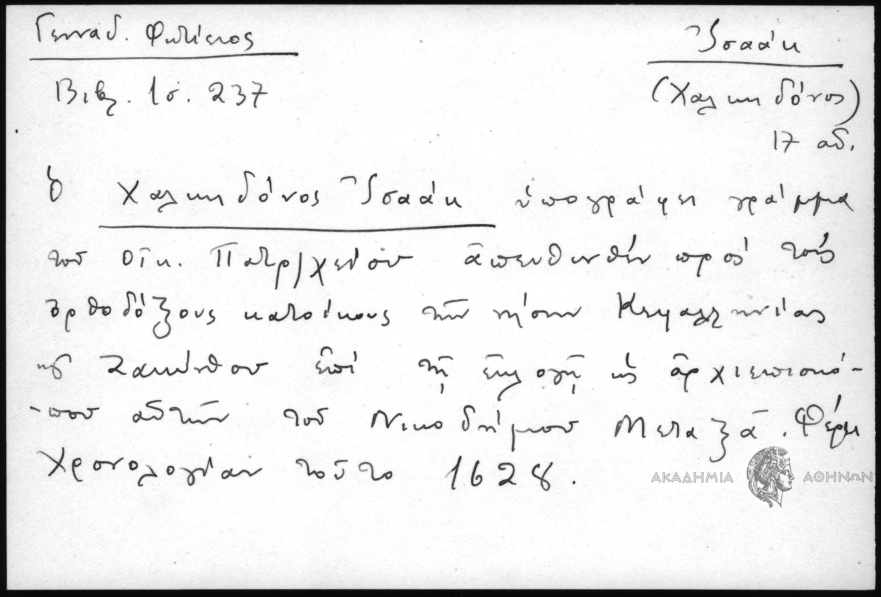 Γενναδ. Φωτίειος
Ἰσαάκ
Βιβλ. 1σ. 237
(Χαλκηδόνος)
17 αἰ.
Ὁ Χαλκηδόνος Ἰσαάκ ὑπογράφει γράμμα
τοῦ Οἰκ. Πατρ/χείου ἀπευθυνθὲν πρὸς τοὺς
ὀρθοδόξους κατοίκους τῶν νήσων Κεφαλληνίας
καὶ Ζακύνθου ἐπὶ τῇ ἐκλογῇ ὡς ἀρχιεπισκό-
-που αὐτῶν τοῦ Νικοδήμου Μεταξᾶ. Φέρει
χρονολογίαν τοῦτο 1628.
ΑΚΑΔΗΜΙΑ ΑΘΗΝΩΝ